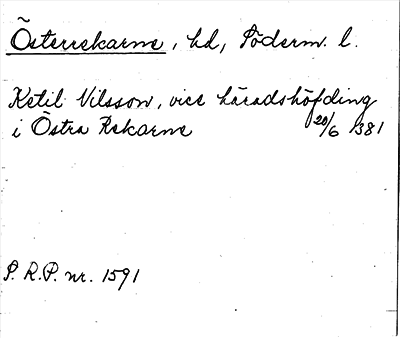 Österrekarne, hd, Söderm. l.
Ketil Nilsson, vice häradshöfding
i Östra Rekarne 20/6 1381
S. R. P. nr. 1591